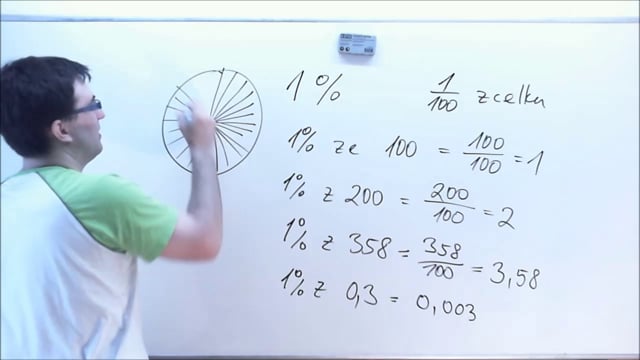 1% 1/100 z celku
1% ze 100 = 100/100 = 1
1% z 200 = 200/100 = 2
1% z 358 = 358/100 = 3,58
1% z 0,3 = 0,003